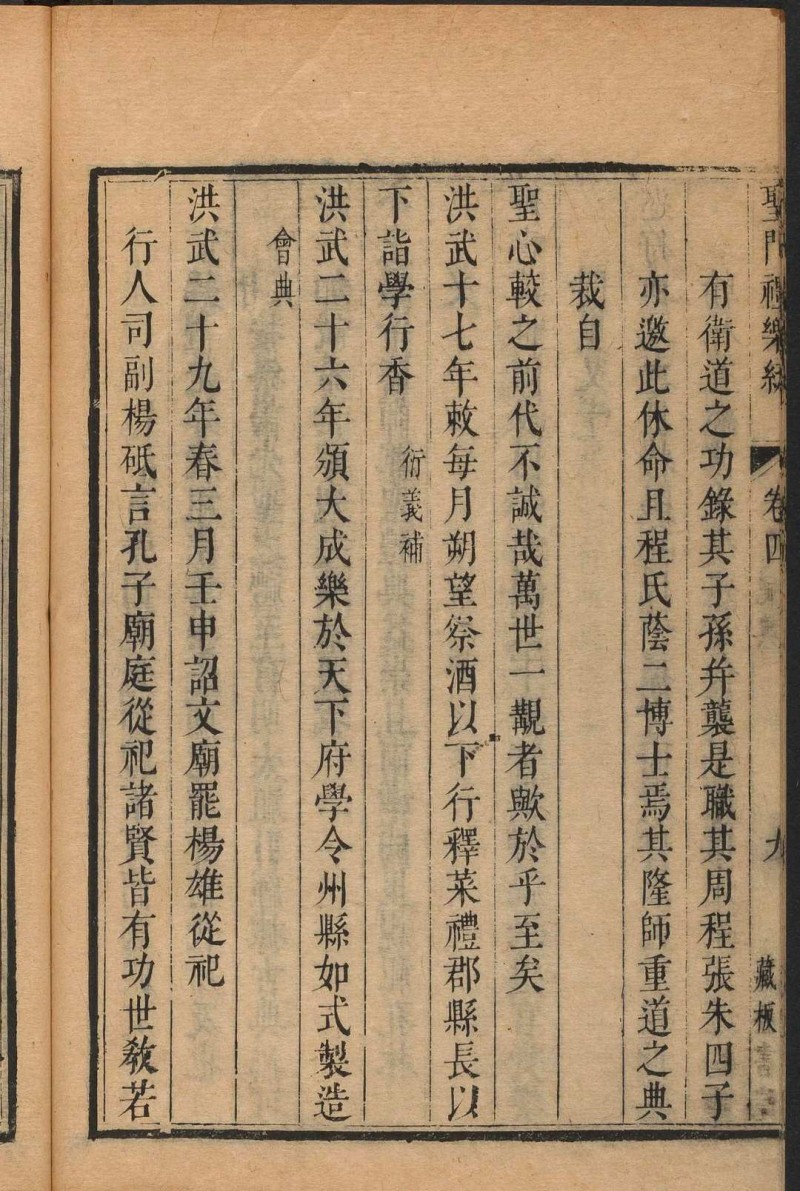 聖門禮樂統 卷四 九 藏板
有衛道之功錄其子孫并襲是職其周程張朱四子
亦邀此休命且程氏蔭二博士焉其隆師重道之典
裁自
聖心較之前代不誠哉萬世一覩者歟於乎至矣
洪武十七年敕每月朔望祭酒以下行釋菜禮郡縣長以
下詣學行香 衍義補
洪武二十六年頒大成樂於天下府學令州縣如式製造
會典
洪武二十九年春三月壬申詔文廟罷楊雄從祀
行人司副楊砥言孔子廟庭從祀諸賢皆有功世教若